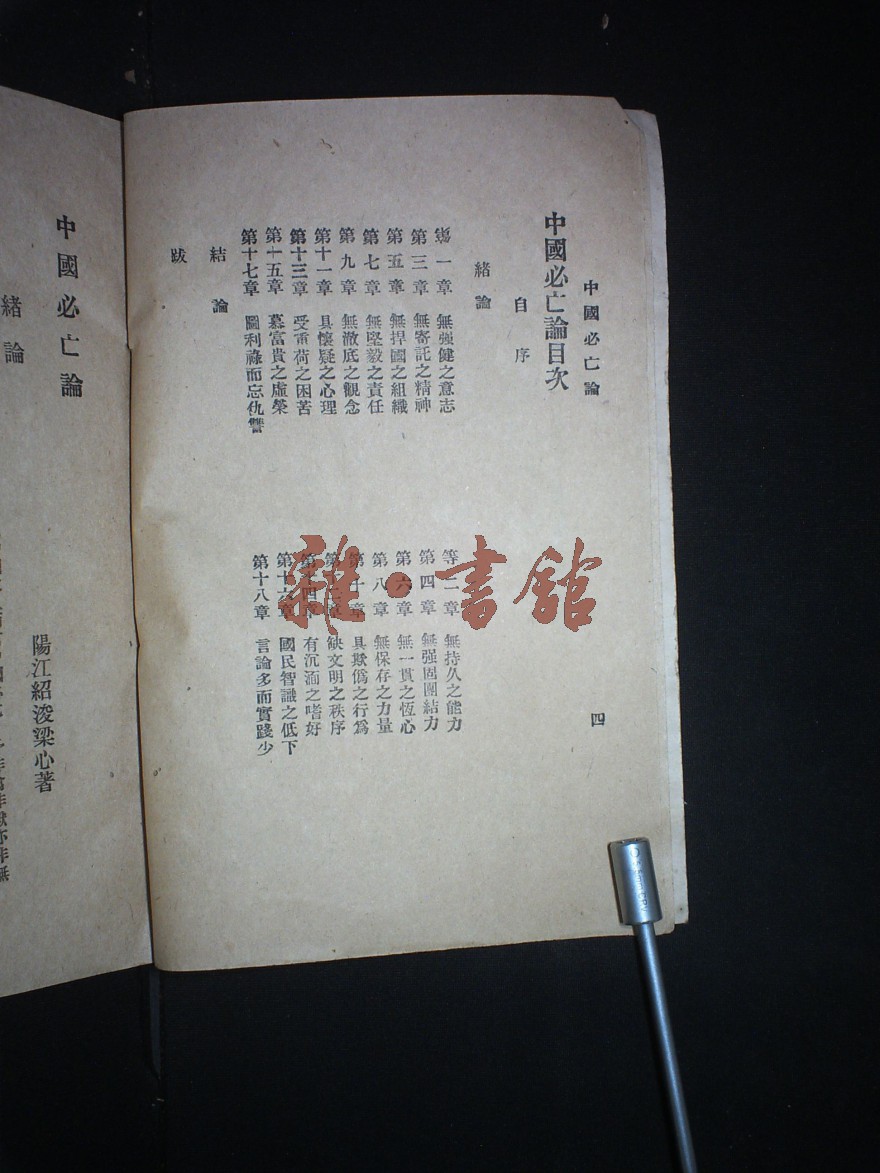 中國必亡論
四
中國必亡論目次
自序
緒論
第一章 無强健之意志
等二章 無持久之能力
第三章 無寄託之精神
第四章 無强固團結力
第五章 無捍國之組織
第六章 無一貫之恆心
第七章 無堅毅之責任
第八章 無保存之力量
第九章 無澈底之觀念
第十章 具欺僞之行爲
第十一章 具懷疑之心理
第十二章 缺文明之秩序
第十三章 受重荷之困苦
第十四章 有沉湎之嗜好
第十五章 慕富貴之虛榮
第十六章 國民智識之低下
第十七章 圖利祿而忘仇讐
第十八章 言論多而實踐少
結論
跋
中國必亡論
陽江紹浚梁心著
緒論
雜·書館